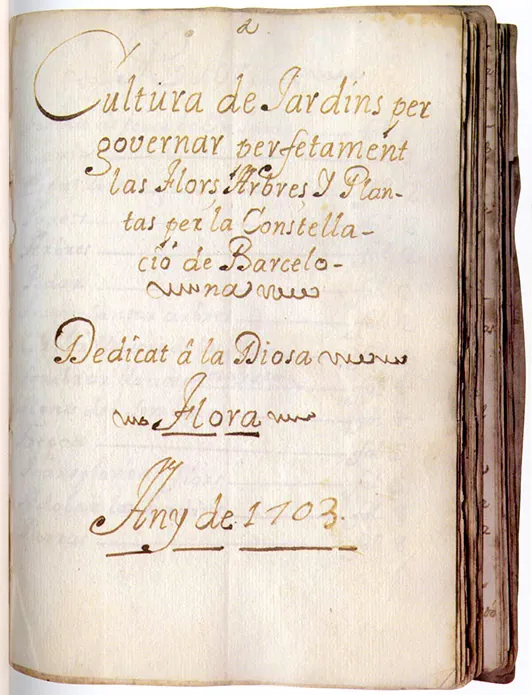 a
Cultura de Jardins per
governar perfetament
las Flors Arbres Y Plan-
tas per la Constella-
ció de Barcelo-
na
Dedicat â la Diosa
Flora
Any de 1703.